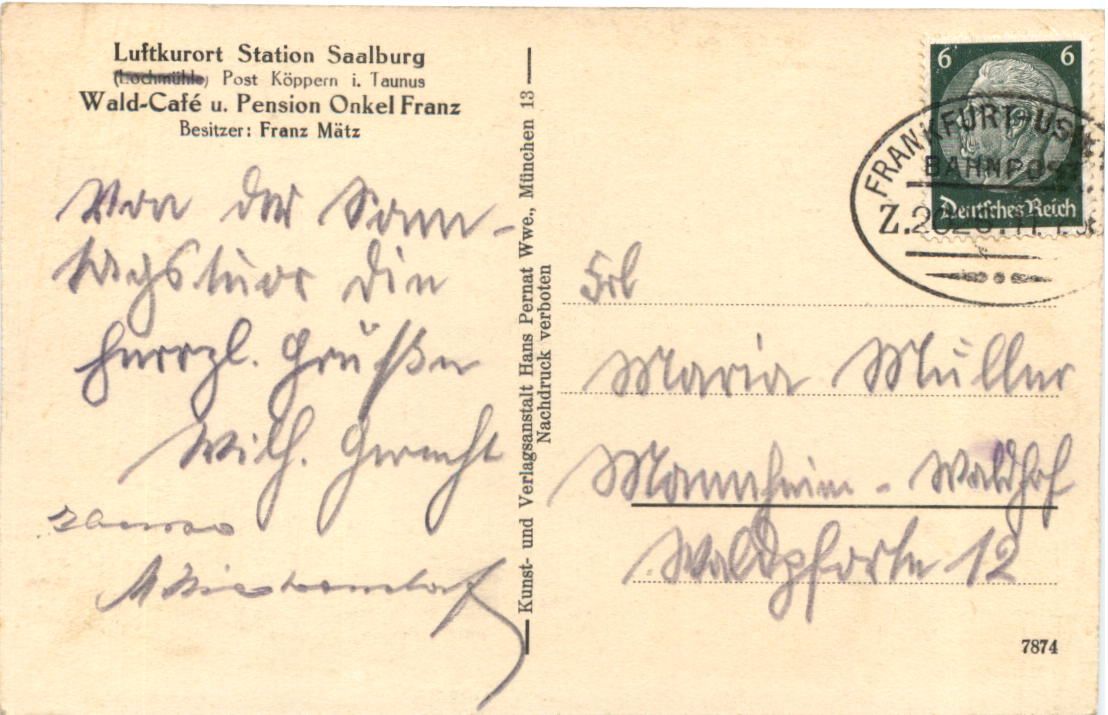 Luftkurort Station Saalburg
(Lochmühle) Post Köppern i. Taunus
Wald-Café u. Pension Onkel Franz
Besitzer: Franz Mätz
Von der Sonn-
tagstour die
herzl. Grüße
Wilh.
Kunst- und Verlagsanstalt Hans Pernat Wwe., München 13
Nachdruck verboten
6 6
Deutsches Reich
FRANKFURT-US
BAHNPOST
Z.
Frl
Maria Müller
Mannheim - Waldhof
Waldpforte 12
7874